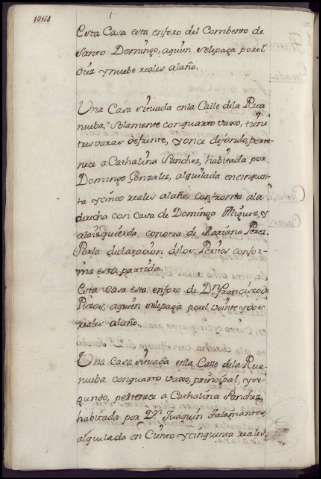 Esta Casa esta enforo del Combento de
Santo Domingo, aquien sele paga por el
diez y nuebe reales alaño.
Una Casa situada enla Calle dela Rua
nueba, Solamente con quarto vaxo, tiene
tres varas defrente, y once defondo, perte
nece a Cathalina Sanchez, habitada por
Domingo Gonzalez, alquilada en cinquen
ta y cinco reales alaño confronta ala
derecha con Casa de Domingo Miguez, y
ala izquierda, con otra de Mariana Perez
Porla declaracion delos Peritos confor
ma esta partida.
Esta Casa esta enforo de Dn. Francisco
aquien sele paga por el veinte y dos
reales alaño.
Una Casa situada enla Calle dela Rua
nueba con quarto vaxo, principal, y se
gundo, pertenece a Cathalina Sanchez,
habitada por Dn. Joaquin
alquilada en Ciento y cinquenta reales